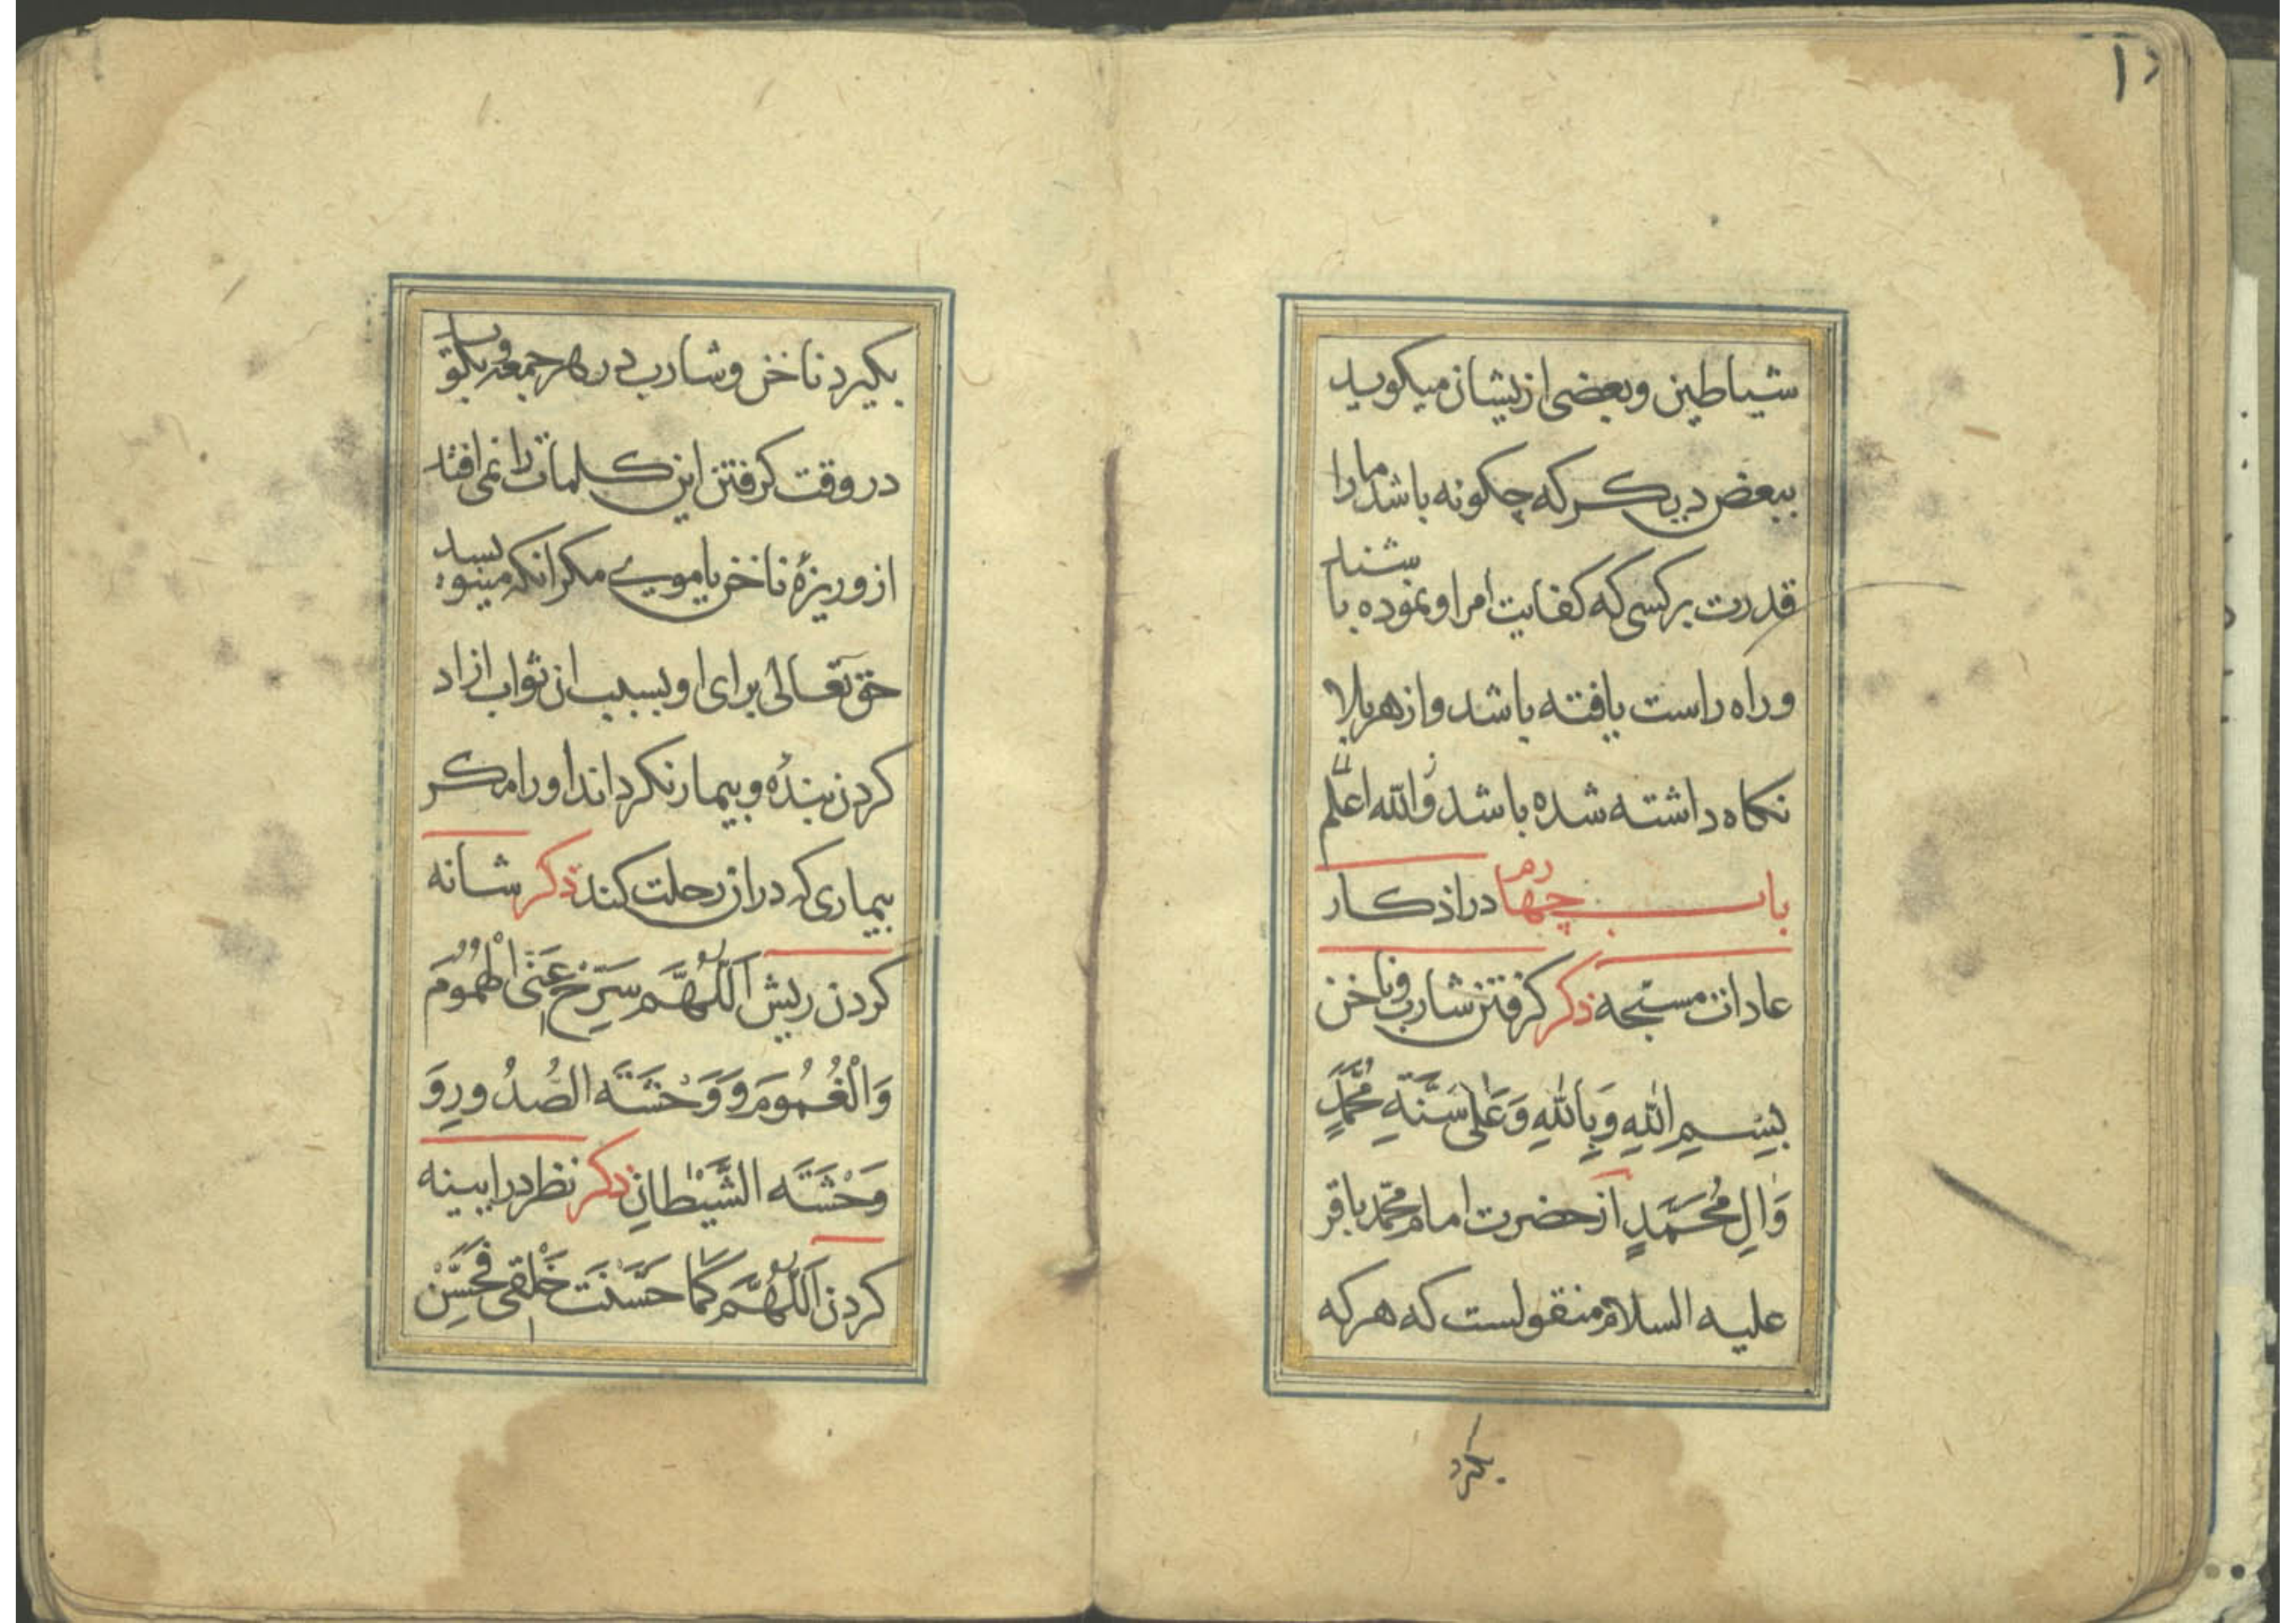 شیاطین و بعضی ازیشان میکوید
ببعض دیکر که چکونه باشد ما را
قدرت بر کسی که کفایت امر او نموده باشد
و راه راست یافته باشد و از هر بلا
نکاه داشته شده باشد والله اعلم
باب چهارم در اذکار
عادات مستحبه ذکر کرفتن شارب و ناخن
بِسْمِ اللهِ وَبِاللهِ وَعَلی سُنَّةِ مُحَمَّدٍ
وَالِ مُحَمَّدٍ از حضرت امام محمد باقر
علیه السلام منقولست که هر که
بکیرد
بکیرد ناخن و شارب در هر جمعه و بکوید
در وقت کرفتن این کلمات را نمی افتد
ازو ریزهٔ ناخن یا مویی مکر انکه مینویسد
حق تعالی برای او بسبب ان ثواب ازاد
کردن بنده و بیمار نکرداند او را مکر
بیماری که در ان رحلت کند ذکر شانه
کردن ریش اَللّهُمَّ سَرِّحْ عَنِّی الْهُمُومَ
وَالْغُمُومَ وَ وَحْشَتَه الصُّدُورِ وَ
وَحْشَتَه الشَّیْطانِ ذکر نظر در ایینه
کردن اَللّهُمَّ کَمَا حَسَّنْتَ خَلْقی فَحَسِّنْ